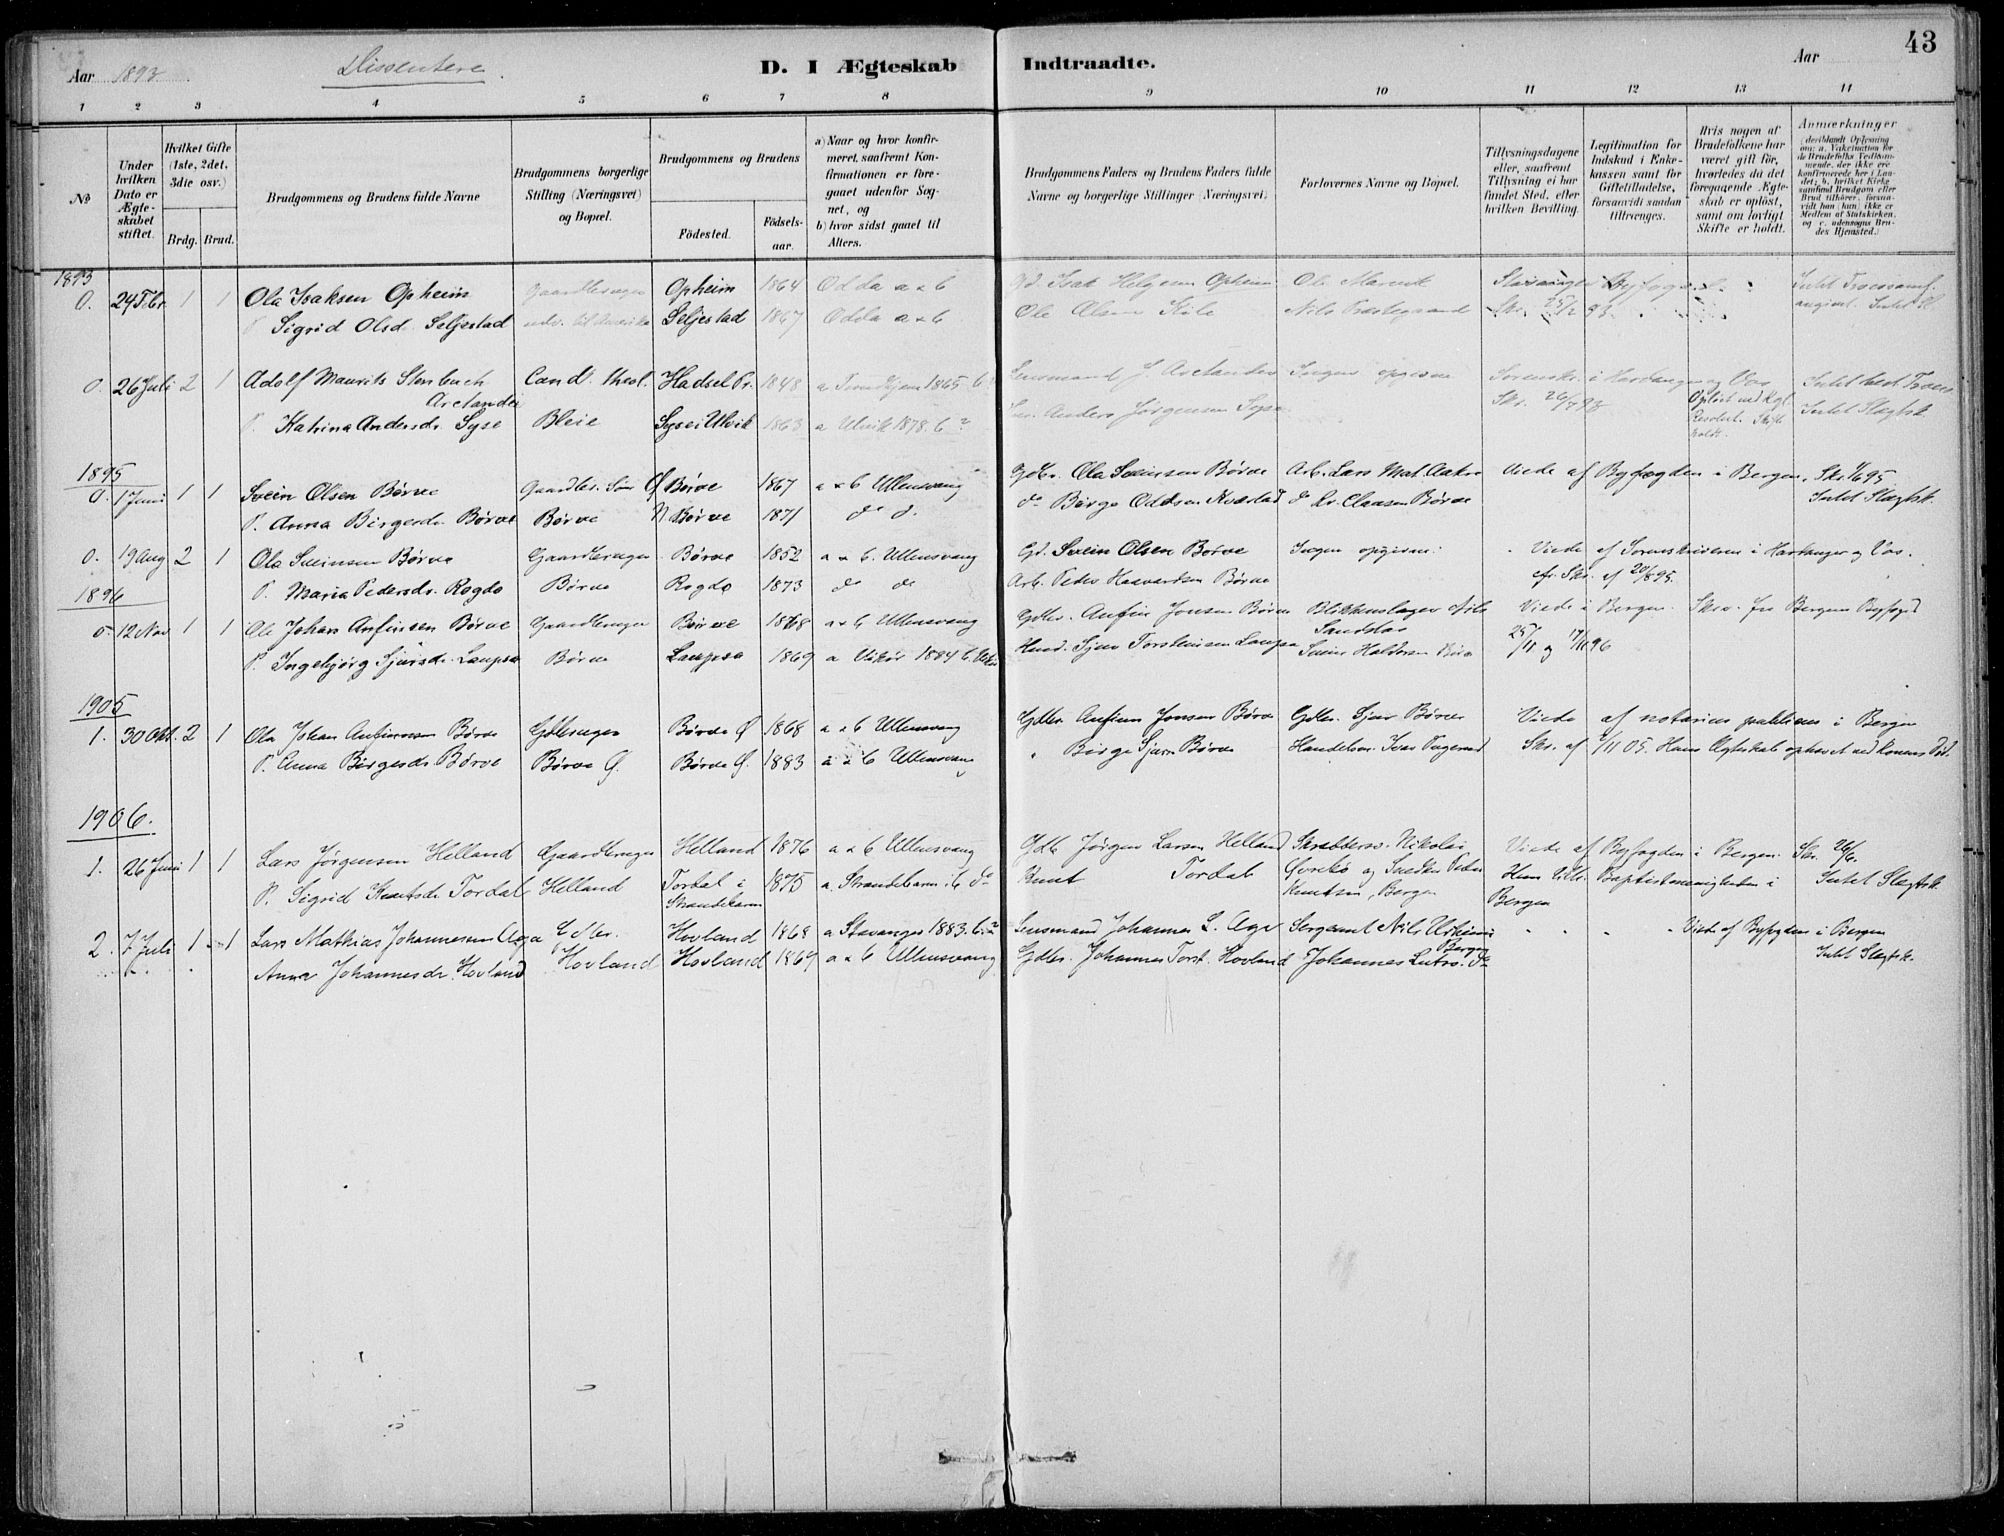 43
Aar 1893 Dissentere D. I Ægteskab Indtraadte. Aar
1 2 3 4 5 6 7 8 9 10 11 12 13 14
No
Under hvilken Dato er Ægteskabet stiftet.
Hvilket Gifte (1ste, 2det, 3die osv.)
Brdg. Brud.
Brudgommens og Brudens fulde Navne
Brudgommens borgerlige Stilling (Næringsvei) og Bopæl.
Brudgommens og Brudens
Födested. Födselsaar.
a) Naar og hvor konfirmeret, saafremt Konfirmationen er foregaaet udenfor Sognet, og
b) hvor sidst gaaet til Alters.
Brudgommens Faders og Brudens Faders fulde Navne og borgerlige Stillinger (Næringsvei)
Forlovernes Navne og Bopæl.
Tillysningsdagene eller, saafremt Tillysning ei har fundet Sted, efter hvilken Bevilling.
Legitimation for Indskud i Enkekassen samt for Giftetilladelse, forsaavidt saadan tiltrænges.
Hvis nogen af Brudefolkene har været gift för, hvorledes da det foregaaende Ægteskab er oplöst, samt om lovligt Skifte er holdt.
Anmærkninger
(deriblandt Oplysning om: a. Vakcination for de Brudefolks Vedkommende, der ikke ere konfirmerede her i Landet; b. hvilket Kirkesamfund Brudgom eller Brud tilhörer, forsaavidt han (hun) ikke er Medlem af Statskirken, og c. udensogns Brudes Hjemsted.)
1893
0. 24 Fbr 1 1 Ola Isaksen Opheim Gaardbruger Opheim 1864 Odda a & b Gd. Isak Helgesen Opheim Ole
Sigrid Olsd Seljestad udv. til Amerika Seljestad 1867 Odda a & b Ole Olsen Nils Prestegaard Skr. 25/2 93
0. 26 Juli 2 1 Adolf Maurits Arctander Cand. theol. Hadsel Pr. 1848 a Trondhjem 1865 b ? Lensmand Arctander Ingen opgivne Sorenskr. i Hardanger og Vos
P. Katrina Andersdr Syse Bleie Syse i Ulvik 1863 a Ulvik 1878. b ? Anders Jørgensen Syse Skr. 26/7 93 Opløst ved Kgl. Resolut. Skifte holdt. Intet Slægtsk.
1895
0. 1 Juni 1 1 Svein Olsen Børve Gaardbr. Søn Ø Børve 1867 a & b Ullensvang Gdbr. Ola Sveinsen Børve Arb. Lars Mat. Aakre Viede af Byfogden i Bergen. Skr. 1/6 95
P. Anna Birgesdr Børve Børve N. Børve 1871 do do Birge Oddsen Kvestad do Claasen Børve Intet Slægtsk.
0. 19 Aug 2 1 Ola Sveinsen Børve Gaardbruger Børve 1852 a & b. Ullensvang Gd. Svein Olsen Børve Ingen opgivne. Viede af Sorenskriveren i Hardanger og Vos.
P. Maria Pedersdr. Rogde Børve Rogde 1873 do do Arb. Peder Haavardsen Børve Skr. af 20/8 95.
1896
0. 12 Nov 1 1 Ole Johan Anfinsen Børve Gaardbruger Børve 1868 a & b Ullensvang Gdbr. Anfin Jonsen Børve Blikkenslager Nils Sandstad Viede i Bergen. Skr. fra Bergens Byfogd
P. Ingebjørg Sjursdr. Laupsa Børve Laupsa 1869 a Vikør 1884 b. Sjur Torsteinsen Laupsa Svein Haldorsen Børve 25/11 og 17/11 96
1905
1. 30 Okt. 2 1 Ola Johan Anfinnsen Børve Gdbruger Børve Ø 1868 a & b Ullensvang Gdbr. Anfinn Jonsen Børve Gdbr. Sjur Børve Viede af notarius publicus i Bergen
P. Anna Birgesdr Børve Børve Ø. Børve Ø. 1883 a & b Ullensvang " Birge Sjurs. Børve Handelsm. Ivar Skr. af 1/11 05. Hans Ægteskab ophævet ved Konens Død.
1906.
1. 26 Juni 1 1 Lars Jørgensen Helland Gaardbruger Helland 1876 a & b Ullensvang Gdb Jørgen Larsen Helland Skrædersv. Nikolai Viede af Byfogden i Bergen. Skr. 26/6.
P. Sigrid Knutsdr Tordal Helland Tordal i Strandebarm 1875 a. Strandebarm, b. do Knut Tordal og Snedker Peder Knutsen, Bergen Hun tilh. Baptistmenigheden i Bergen Intet Slægtsk.
2. 7 Juli 1 1 Lars Mathias Johannessen Aga Gdbr. Hovland 1868 a Stavanger 1883. b. ? Lensmand Johannes L. Aga Sergeant Nils Bergen Viede af Byfogden i Bergen
Anna Johannesdr. Hovland Hovland Hovland 1869 a & b Ullensvang Gdbr. Johannes Torst. Hovland Johannes do Intet Slægtsk.